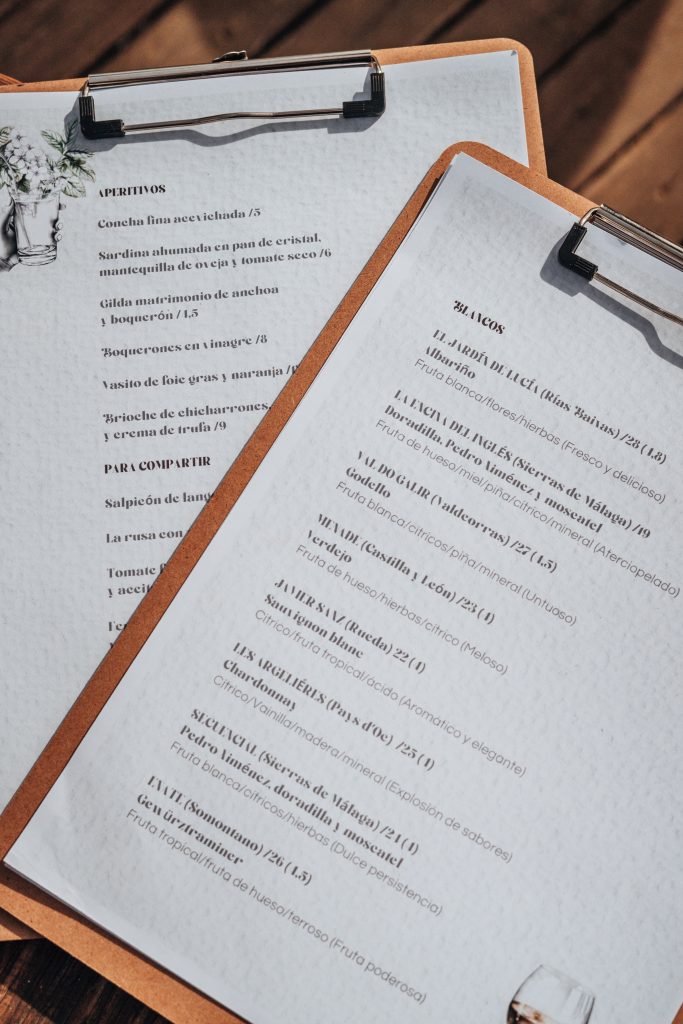 APERITIVOS
Concha fina acevichada /5
Sardina ahumada en pan de cristal,
mantequilla de oveja y tomate seco /6
Gilda matrimonio de anchoa
y boquerón /4,5
Boquerones en vinagre /8
Vasito de foie gras y naranja
Brioche de chicharrones,
y crema de trufa /9
PARA COMPARTIR
Salpicón de
La rusa con
Tomate
y
BLANCOS
EL JARDÍN DE LUCÍA (Rías Baixas) /28 (4,8)
Albariño
Fruta blanca/flores/hierbas (Fresco y delicioso)
LA ENCINA DEL INGLÉS (Sierras de Málaga) /19
Doradilla, Pedro Ximénez y moscatel
Fruta de hueso/miel/piña/cítrico/mineral (Aterciopelado)
VAL DO GALIR (Valdeorras) /27 (4,5)
Godello
Fruta blanca/cítricos/piña/mineral (Untuoso)
MENADE (Castilla y León) /23 (4)
Verdejo
Fruta de hueso/hierbas/cítrico (Meloso)
JAVIER SANZ (Rueda) 22 (4)
Sauvignon blanc
Cítrico/fruta tropical/ácido (Aromático y elegante)
LES ARGELIÉRES (Pays d'Oc) /25 (4)
Chardonnay
Cítrico/Vainilla/madera/mineral (Explosión de sabores)
SECUENCIAL (Sierras de Málaga) /24 (4)
Pedro Ximénez, doradilla y moscatel
Fruta blanca/cítricos/hierbas (Dulce persistencia)
ENATE (Somontano) /26 (4,5)
Gewürztraminer
Fruta tropical/fruta de hueso/terroso (Fruta poderosa)